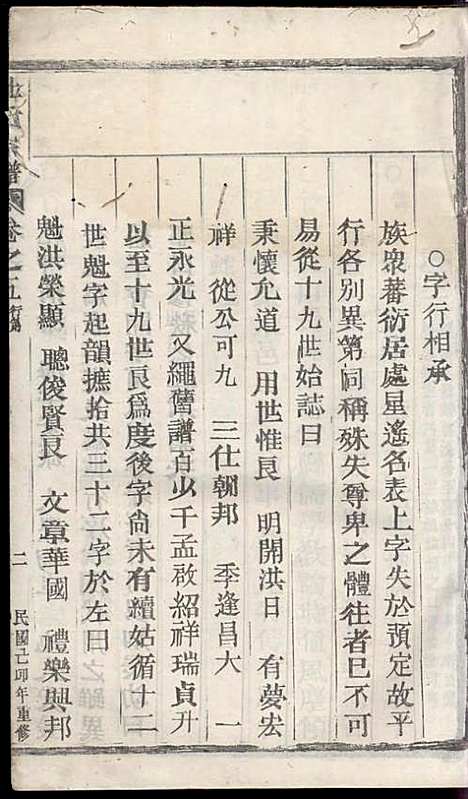 ○字行相承
族眾蕃衍居處星遙名表上字失於預定故平
行各別異第同稱殊失尊卑之體往者巳不可
易從十九世始誌曰
秉懷允道 用世惟良 明開洪日 有夢宏
祥 從公可九 三仕朝邦 季逢昌大 一
正永光 又繩舊譜百以千孟啟紹祥瑞貞升
以至十九世良爲度後字尚未有續姑循十二
世魁字起韻摭拾共三十二字於左曰
魁洪榮顯 聰俊賢良 文章華國 禮樂興邦
譜 卷之五 二 民國己卯年重修